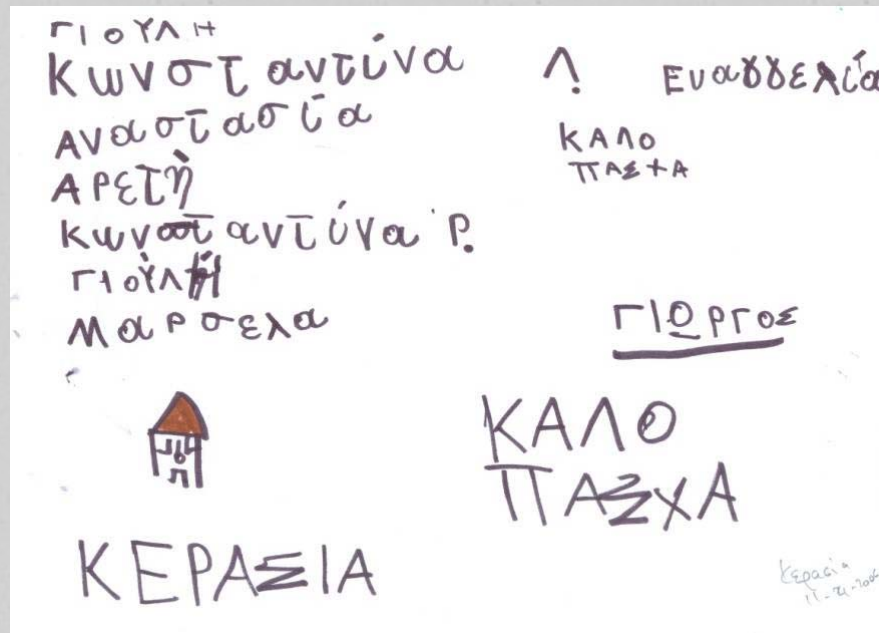 ΓΙΟΥΛΗ
Κωνσταντίνα Λ.
Αναστασία
ΑΡΕΤὴ
Κωνσταντίνα Ρ.
ΓΙΟΎΛΗ
Μαρσελα
Ευαγγελία
ΚΑΛΟ
ΠΑΣΧΑ
ΓΙΩΡΓΟΣ
ΚΑΛΟ
ΠΑΣΧΑ
ΚΕΡΑΣΙΑ
Κερασία